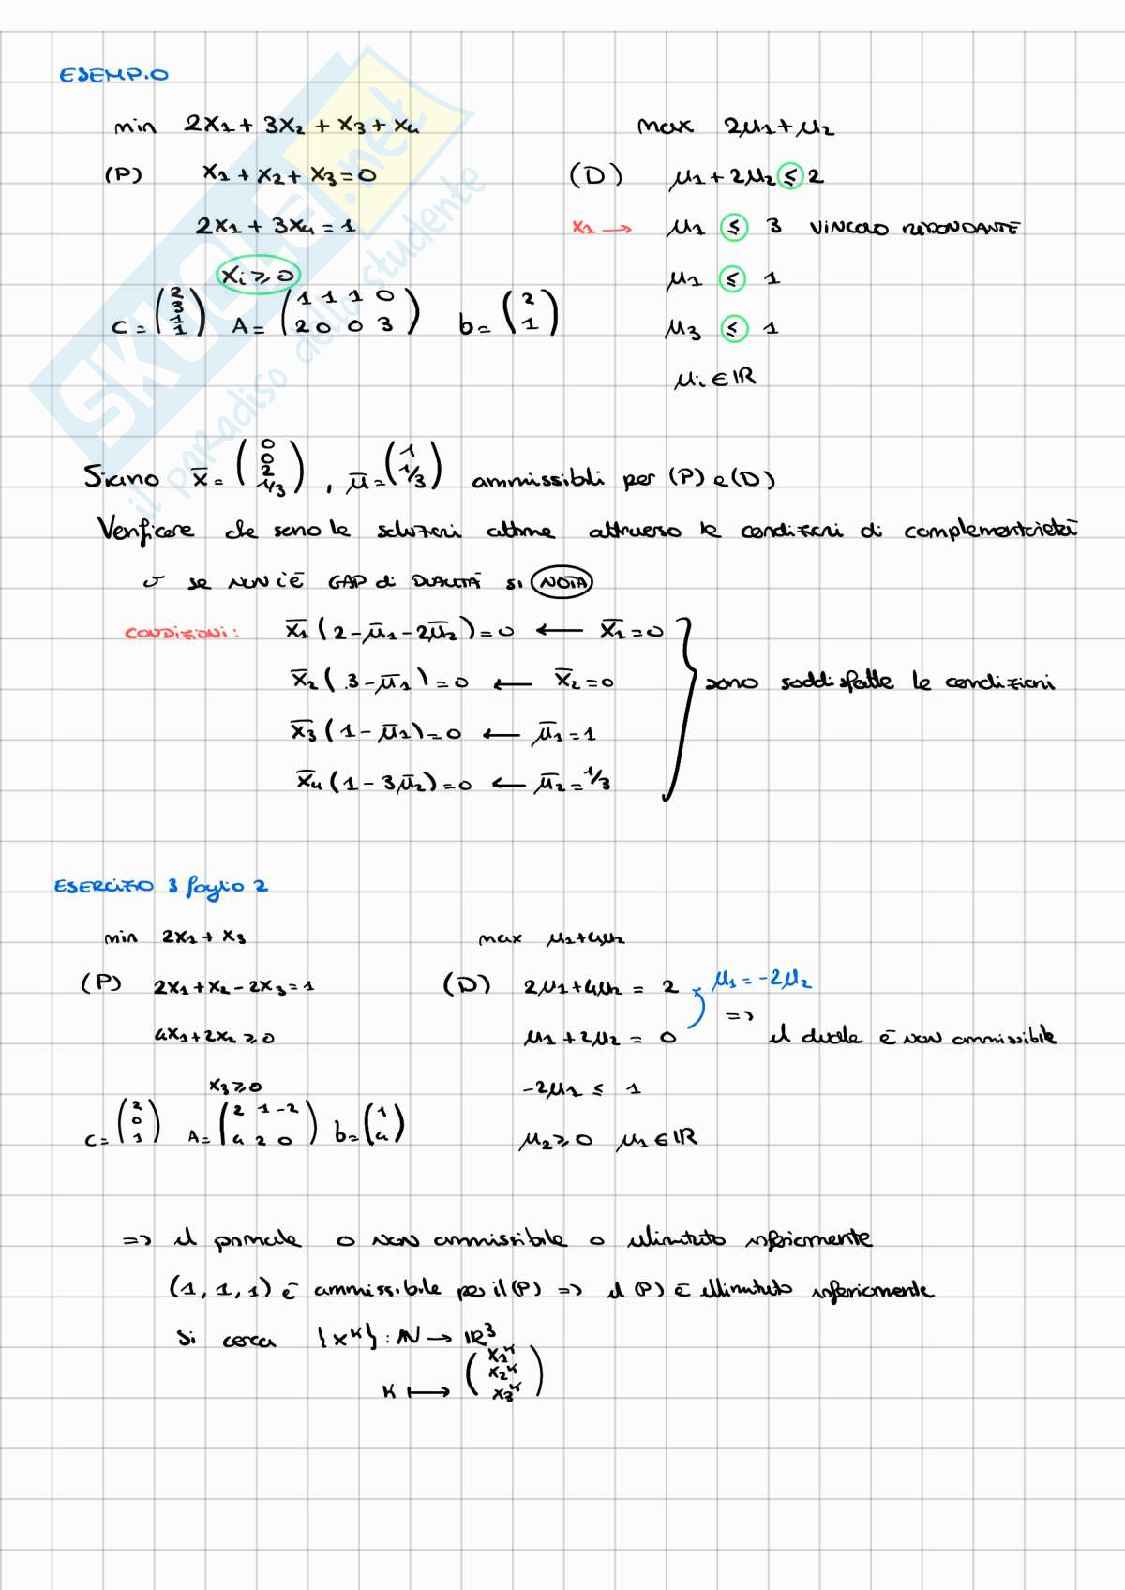 ESEMPIO
min 2x₁ + 3x₂ + x₃ + x₄
(P) x₁ + x₂ + x₃ = 0
2x₁ + 3x₄ = 1
xᵢ ≥ 0
c = (2 3 1 1) A = (1 1 1 0 / 2 0 0 3) b = (2 1)
max 2μ₁ + μ₂
(D) μ₁ + 2μ₂ ≤ 2
x₁ → μ₁ ≤ 3 VINCOLO RIDONDANTE
μ₁ ≤ 1
μ₃ ≤ 1
μᵢ ∈ ℝ
Siano x̄ = (0 0 2 1/3), μ̄ = (1 1/3) ammissibili per (P) e (D)
Verificare che sono le soluzioni ottime attraverso le condizioni di complementarietà
o se NON C'È GAP di DUALITÀ si NOTA
CONDIZIONI: x̄₁(2 - μ̄₁ - 2μ̄₂) = 0 ← x̄₁ = 0
x̄₂(3 - μ̄₁) = 0 ← x̄₂ = 0
sono soddisfatte le condizioni
x̄₃(1 - μ̄₁) = 0 ← μ̄₁ = 1
x̄₄(1 - 3μ̄₂) = 0 ← μ̄₂ = 1/3
ESERCIZIO 3 foglio 2
min 2x₁ + x₃
(P) 2x₁ + x₂ - 2x₃ = 1
4x₁ + 2x₂ ≥ 0
x₃ ≥ 0
c = (2 0 1) A = (2 1 -2 / 4 2 0) b = (1 4)
max μ₁ + 4μ₂
(D) 2μ₁ + 4μ₂ = 2 μ₁ = -2μ₂
μ₁ + 2μ₂ = 0 => il duale è non ammissibile
-2μ₁ ≤ 1
μ₂ ≥ 0 μ₁ ∈ ℝ
=> il primale o non ammissibile o illimitato inferiormente
(1, 1, 1) è ammissibile per il (P) => il (P) è illimitato inferiormente
Si cerca {xᴷ} : ℕ → ℝ³
K ↦ (x₁ᴷ x₂ᴷ x₃ᴷ)
SKUOLA.net
il paradiso dello studente